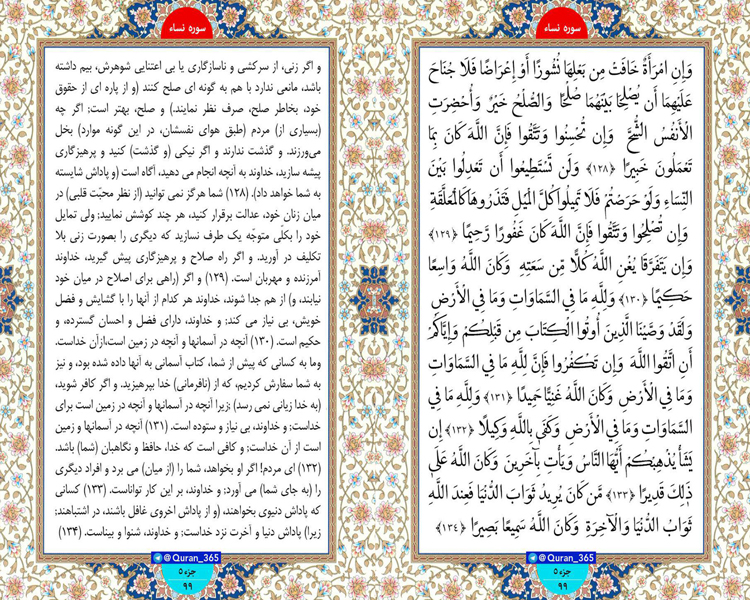 سوره نساء
وَإِنِ امْرَأَةٌ خَافَتْ مِن بَعْلِهَا نُشُوزًا أَوْ إِعْرَاضًا فَلَا جُنَاحَ
عَلَيْهِمَا أَن يُصْلِحَا بَيْنَهُمَا صُلْحًا وَالصُّلْحُ خَيْرٌ وَأُحْضِرَتِ
الْأَنفُسُ الشُّحَّ وَإِن تُحْسِنُوا وَتَتَّقُوا فَإِنَّ اللَّهَ كَانَ بِمَا
تَعْمَلُونَ خَبِيرًا ﴿۱۲۸﴾ وَلَن تَسْتَطِيعُوا أَن تَعْدِلُوا بَيْنَ
النِّسَاءِ وَلَوْ حَرَصْتُمْ فَلَا تَمِيلُوا كُلَّ الْمَيْلِ فَتَذَرُوهَا كَالْمُعَلَّقَةِ
وَإِن تُصْلِحُوا وَتَتَّقُوا فَإِنَّ اللَّهَ كَانَ غَفُورًا رَحِيمًا ﴿۱۲۹﴾
وَإِن يَتَفَرَّقَا يُغْنِ اللَّهُ كُلًّا مِن سَعَتِهِ وَكَانَ اللَّهُ وَاسِعًا
حَكِيمًا ﴿۱۳۰﴾ وَلِلَّهِ مَا فِي السَّمَاوَاتِ وَمَا فِي الْأَرْضِ
وَلَقَدْ وَصَّيْنَا الَّذِينَ أُوتُوا الْكِتَابَ مِن قَبْلِكُمْ وَإِيَّاكُمْ
أَنِ اتَّقُوا اللَّهَ وَإِن تَكْفُرُوا فَإِنَّ لِلَّهِ مَا فِي السَّمَاوَاتِ
وَمَا فِي الْأَرْضِ وَكَانَ اللَّهُ غَنِيًّا حَمِيدًا ﴿۱۳۱﴾ وَلِلَّهِ مَا فِي
السَّمَاوَاتِ وَمَا فِي الْأَرْضِ وَكَفَىٰ بِاللَّهِ وَكِيلًا ﴿۱۳۲﴾ إِن
يَشَأْ يُذْهِبْكُمْ أَيُّهَا النَّاسُ وَيَأْتِ بِآخَرِينَ وَكَانَ اللَّهُ عَلَىٰ
ذَٰلِكَ قَدِيرًا ﴿۱۳۳﴾ مَّن كَانَ يُرِيدُ ثَوَابَ الدُّنْيَا فَعِندَ اللَّهِ
ثَوَابُ الدُّنْيَا وَالْآخِرَةِ وَكَانَ اللَّهُ سَمِيعًا بَصِيرًا ﴿۱۳۴﴾
@Quran_365
جزء ۵
۹۹
سوره نساء
و اگر زنی، از سرکشی و ناسازگاری یا بی اعتنایی شوهرش، بیم داشته
باشد، مانعی ندارد با هم به گونه ای صلح کنند (و از پاره ای از حقوق
خود، بخاطر صلح، صرف نظر نمایند.) و صلح، بهتر است؛ اگر چه
(بسیاری از) مردم (طبق هوای نفسشان، در این گونه موارد) بخل
می‌ورزند. و گذشت ندارند و اگر نیکی (و گذشت) کنید و پرهیزگاری
پیشه سازید، خداوند به آنچه انجام می دهید، آگاه است (و پاداش شایسته
به شما خواهد داد). (۱۲۸) شما هرگز نمی توانید (از نظر محبّت قلبی) در
میان زنان خود، عدالت برقرار کنید، هر چند کوشش نمایید; ولی تمایل
خود را بکلّی متوجّه یک طرف نسازید که دیگری را بصورت زنی بلا
تکلیف در آورید. و اگر راه صلاح و پرهیزگاری پیش گیرید، خداوند
آمرزنده و مهربان است. (۱۲۹) و اگر (راهی برای اصلاح در میان خود
نیابند، و) از هم جدا شوند، خداوند هر کدام از آنها را با گشایش و فضل
خویش، بی نیاز می کند; و خداوند، دارای فضل و احسان گسترده، و
حکیم است. (۱۳۰) آنچه در آسمانها و آنچه در زمین است،ازآن خداست.
وما به کسانی که پیش از شما، کتاب آسمانی به آنها داده شده بود، و نیز
به شما سفارش کردیم، که از (نافرمانی) خدا بپرهیزید. و اگر کافر شوید،
(به خدا زیانی نمی رسد) ;زیرا آنچه در آسمانها و آنچه در زمین است برای
خداست; و خداوند، بی نیاز و ستوده است. (۱۳۱) آنچه در آسمانها و زمین
است از آن خداست; و کافی است که خدا، حافظ و نگاهبان (شما) باشد.
(۱۳۲) ای مردم! اگر او بخواهد، شما را (از میان) می برد و افراد دیگری
را (به جای شما) می آورد; و خداوند، بر این کار تواناست. (۱۳۳) کسانی
که پاداش دنیوی بخواهند، (و از پاداش اخروی غافل باشند، در اشتباهند;
زیرا) پاداش دنیا و آخرت نزد خداست; و خداوند، شنوا و بیناست. (۱۳۴)
@Quran_365
جزء ۵
۹۹